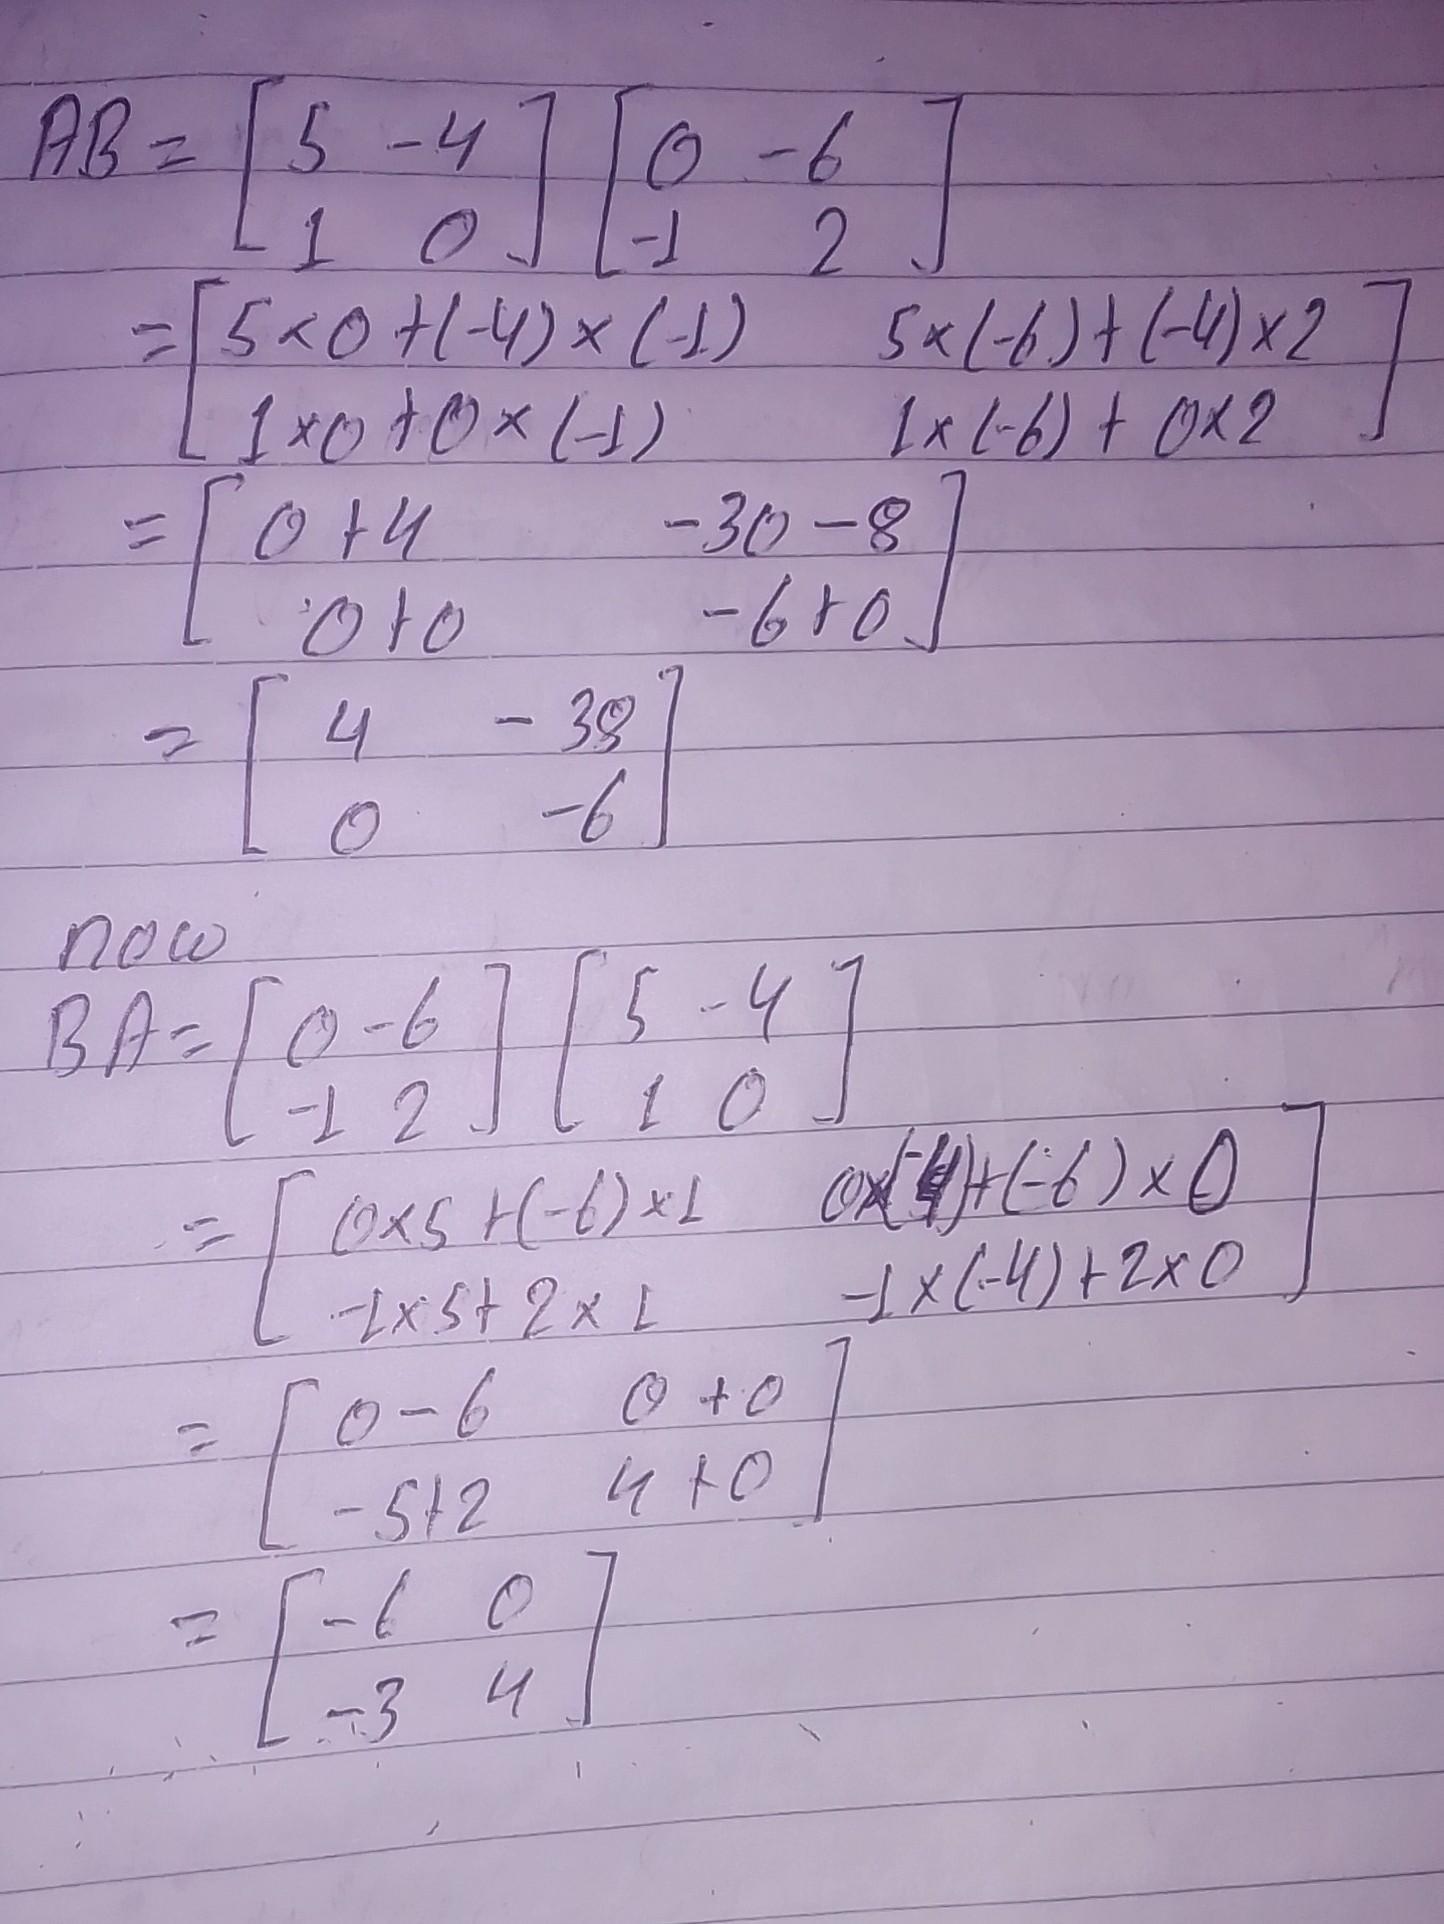 AB = [ 5 -4 ] [ 0 -6 ]
[ 1 0 ] [ -1 2 ]
= [ 5×0+(-4)×(-1) 5×(-6)+(-4)×2 ]
[ 1×0+0×(-1) 1×(-6)+0×2 ]
= [ 0+4 -30-8 ]
[ 0+0 -6+0 ]
= [ 4 -38 ]
[ 0 -6 ]
now
BA = [ 0 -6 ] [ 5 -4 ]
[ -1 2 ] [ 1 0 ]
= [ 0×5+(-6)×1 0×(-4)+(-6)×0 ]
[ -1×5+2×1 -1×(-4)+2×0 ]
= [ 0-6 0+0 ]
[ -5+2 4+0 ]
= [ -6 0 ]
[ -3 4 ]